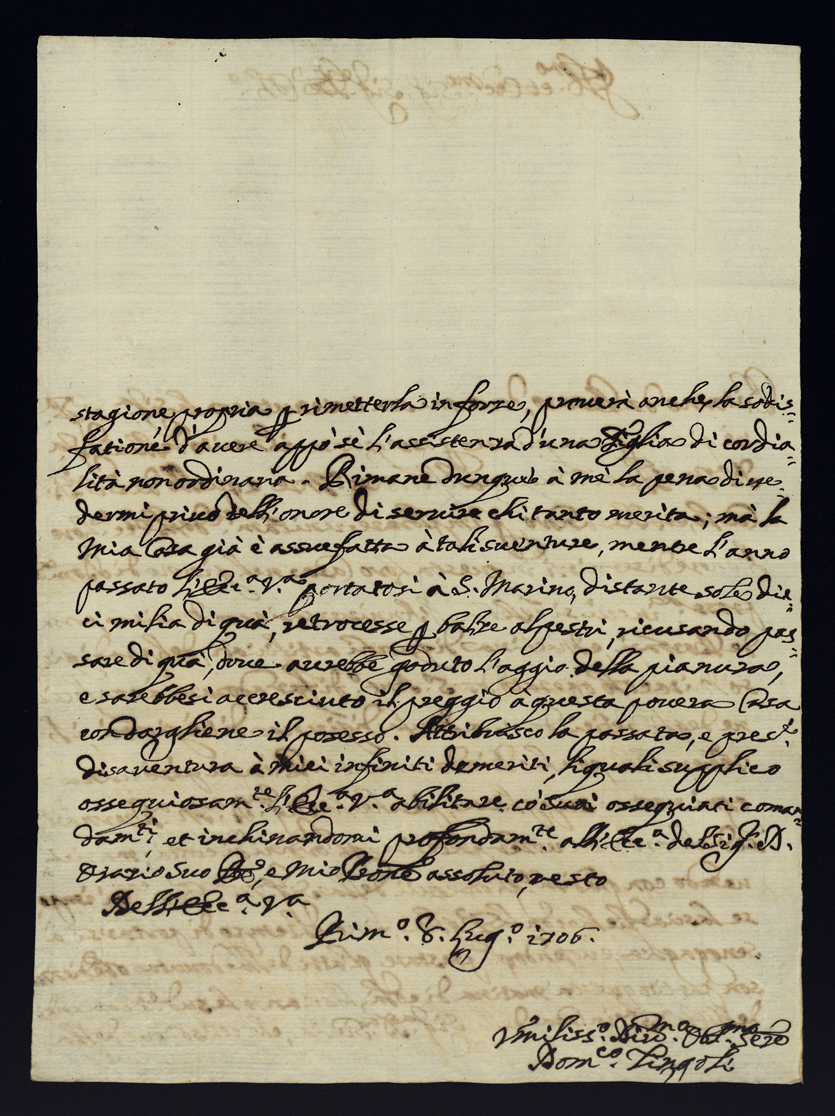 stagione propria p rimetterla in forze, proverà anche la sodis=
fatione d'avere appo sè l'assistenza d'una Figlia di cordia=
lità non ordinaria. Rimane dunque à mè la pena di ve=
dermi privo dell'onore di servire chi tanto merita; mà la
Mia Casa già è assuefatta à tali sventure, mentre l'anno
passato l'Ecc.ª V.ª portatosi à S. Marino, distante sole die=
ci milia di quà, retrocesse p balze alpestri, ricusando pas=
sare di quà, dove avrebbe goduto l'aggio della pianura,
e sarebbesi accresciuto il preggio à questa povera Casa
con dargliene il posesso. Attribuisco la passata, e pres.te
disaventura à miei infiniti demeriti, li quali supplico
ossequiosam.te l'Ecc.ª V.ª abilitare có suoi ossequiati coman=
dam.ti, et inchinandomi profondam.te all'Ecc.ª del Sig.r D.
Orazio suo, e Mio Prone assoluto, resto
Dell'Ecc.ª V.ª
Rim.º 8. Lug.º 1706.
Vmiliss.º Div.mo Obl.mo Sere
Dom.co Zingoli